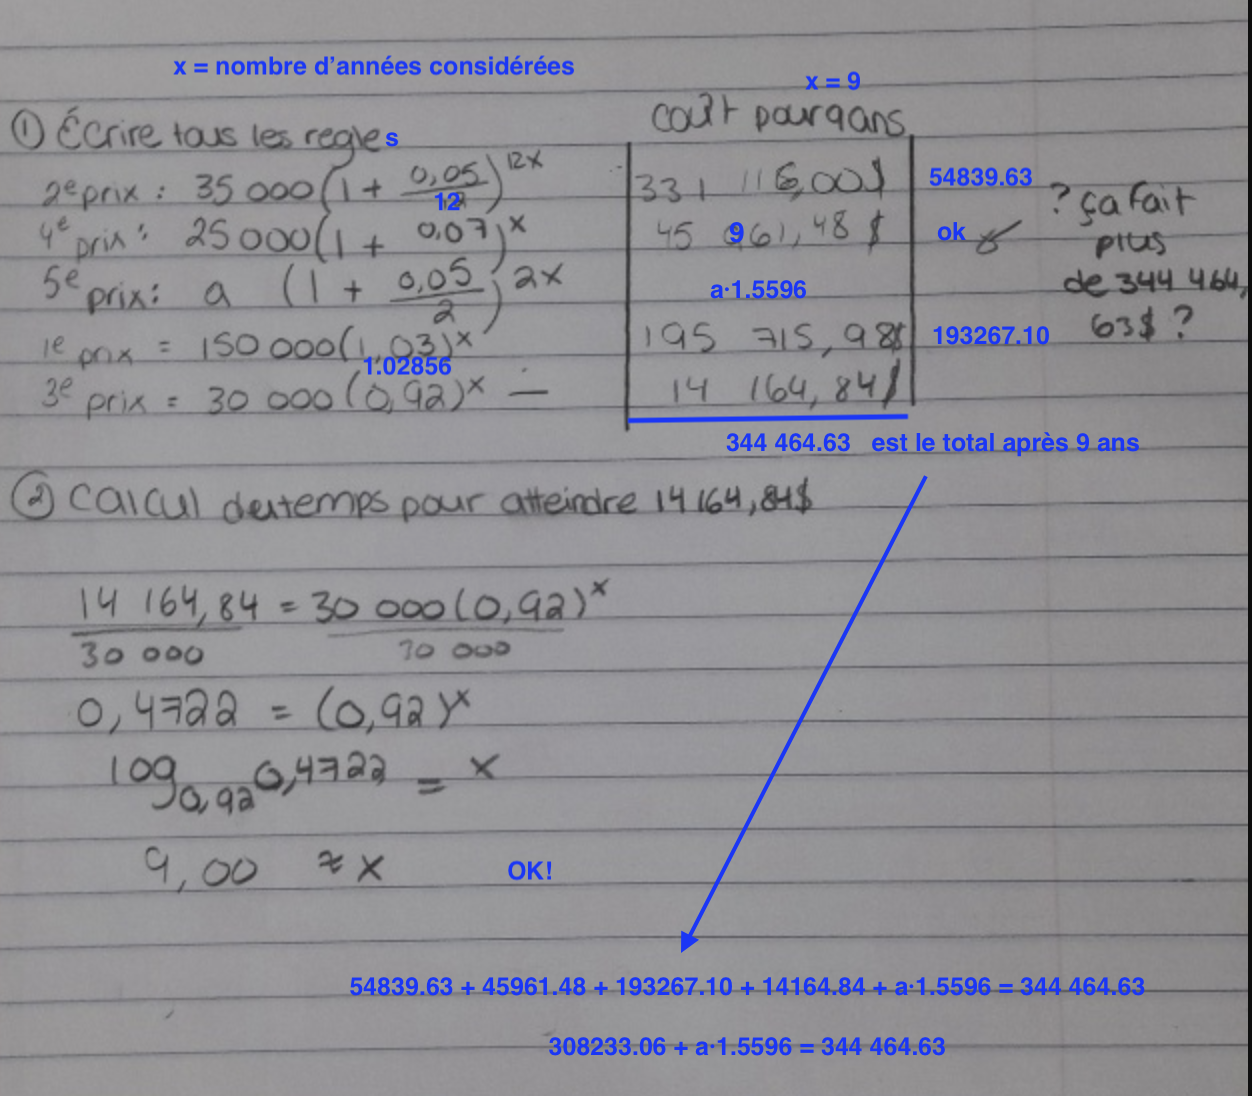 x = nombre d'années considérées
x = 9
① Écrire tous les regles
coût pour 9 ans
2e prix : 35 000(1 + 0,05/12)^12x 331 116,00$ 54839.63
4e prix : 25 000(1 + 0,07)^x 45 961,48 $ ok
5e prix : a (1 + 0,05/2)^2x a·1.5596
1e prix = 150 000(1,03)^x 195 715,98$ 193267.10
1.02856
3e prix = 30 000(0,92)^x — 14 164,84$
? ça fait
plus
de 344 464,
63$ ?
344 464.63 est le total après 9 ans
② Calcul du temps pour atteindre 14 164,84$
14 164,84 = 30 000(0,92)^x
30 000 30 000
0,4722 = (0,92)^x
log0,92 0,4722 = x
9,00 ≈ x OK!
54839.63 + 45961.48 + 193267.10 + 14164.84 + a·1.5596 = 344 464.63
308233.06 + a·1.5596 = 344 464.63